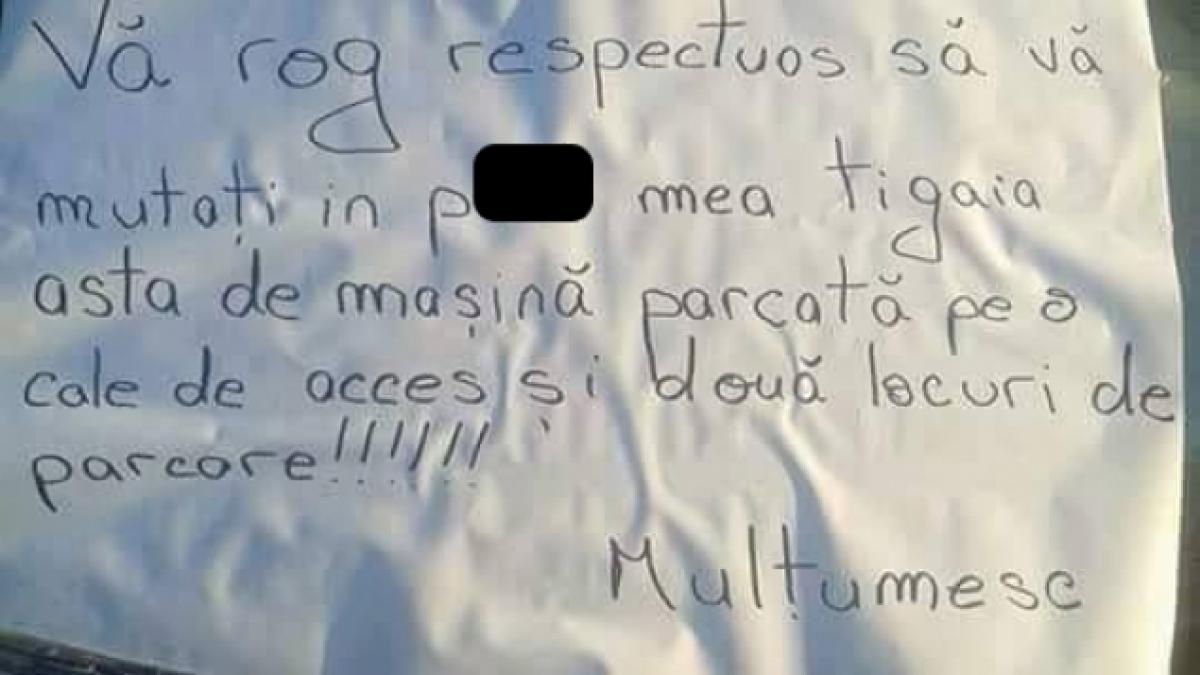 Vă rog respectuos să vă
mutați in p mea tigaia
asta de mașină parcată pe o
cale de acces și două locuri de
parcare!!!!!!!
Mulțumesc